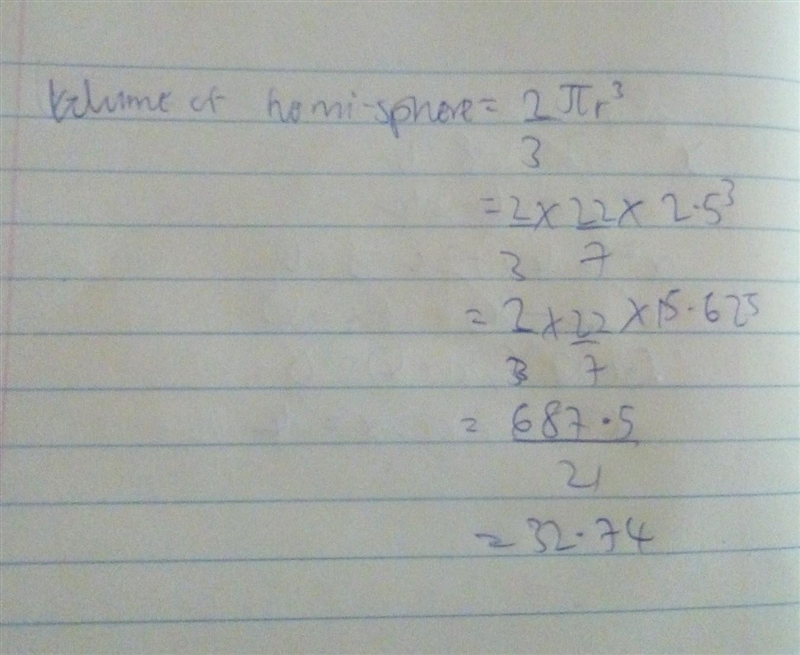 Volume of hemi-sphere = 2 πr³
3
= 2 × 22 × 2.5³
3 7
= 2 × 22 × 15.625
3 7
= 687.5
21
= 32.74